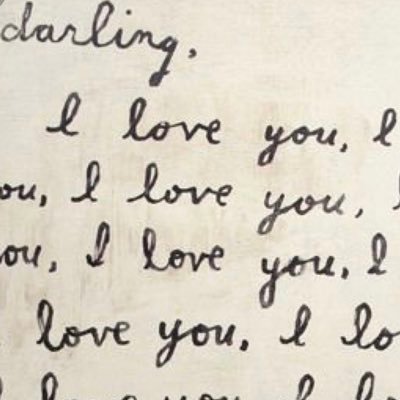 darling,
I love you, I
ou, I love you, I
ou, I love you, I
love you, I lo
I love you, I lo